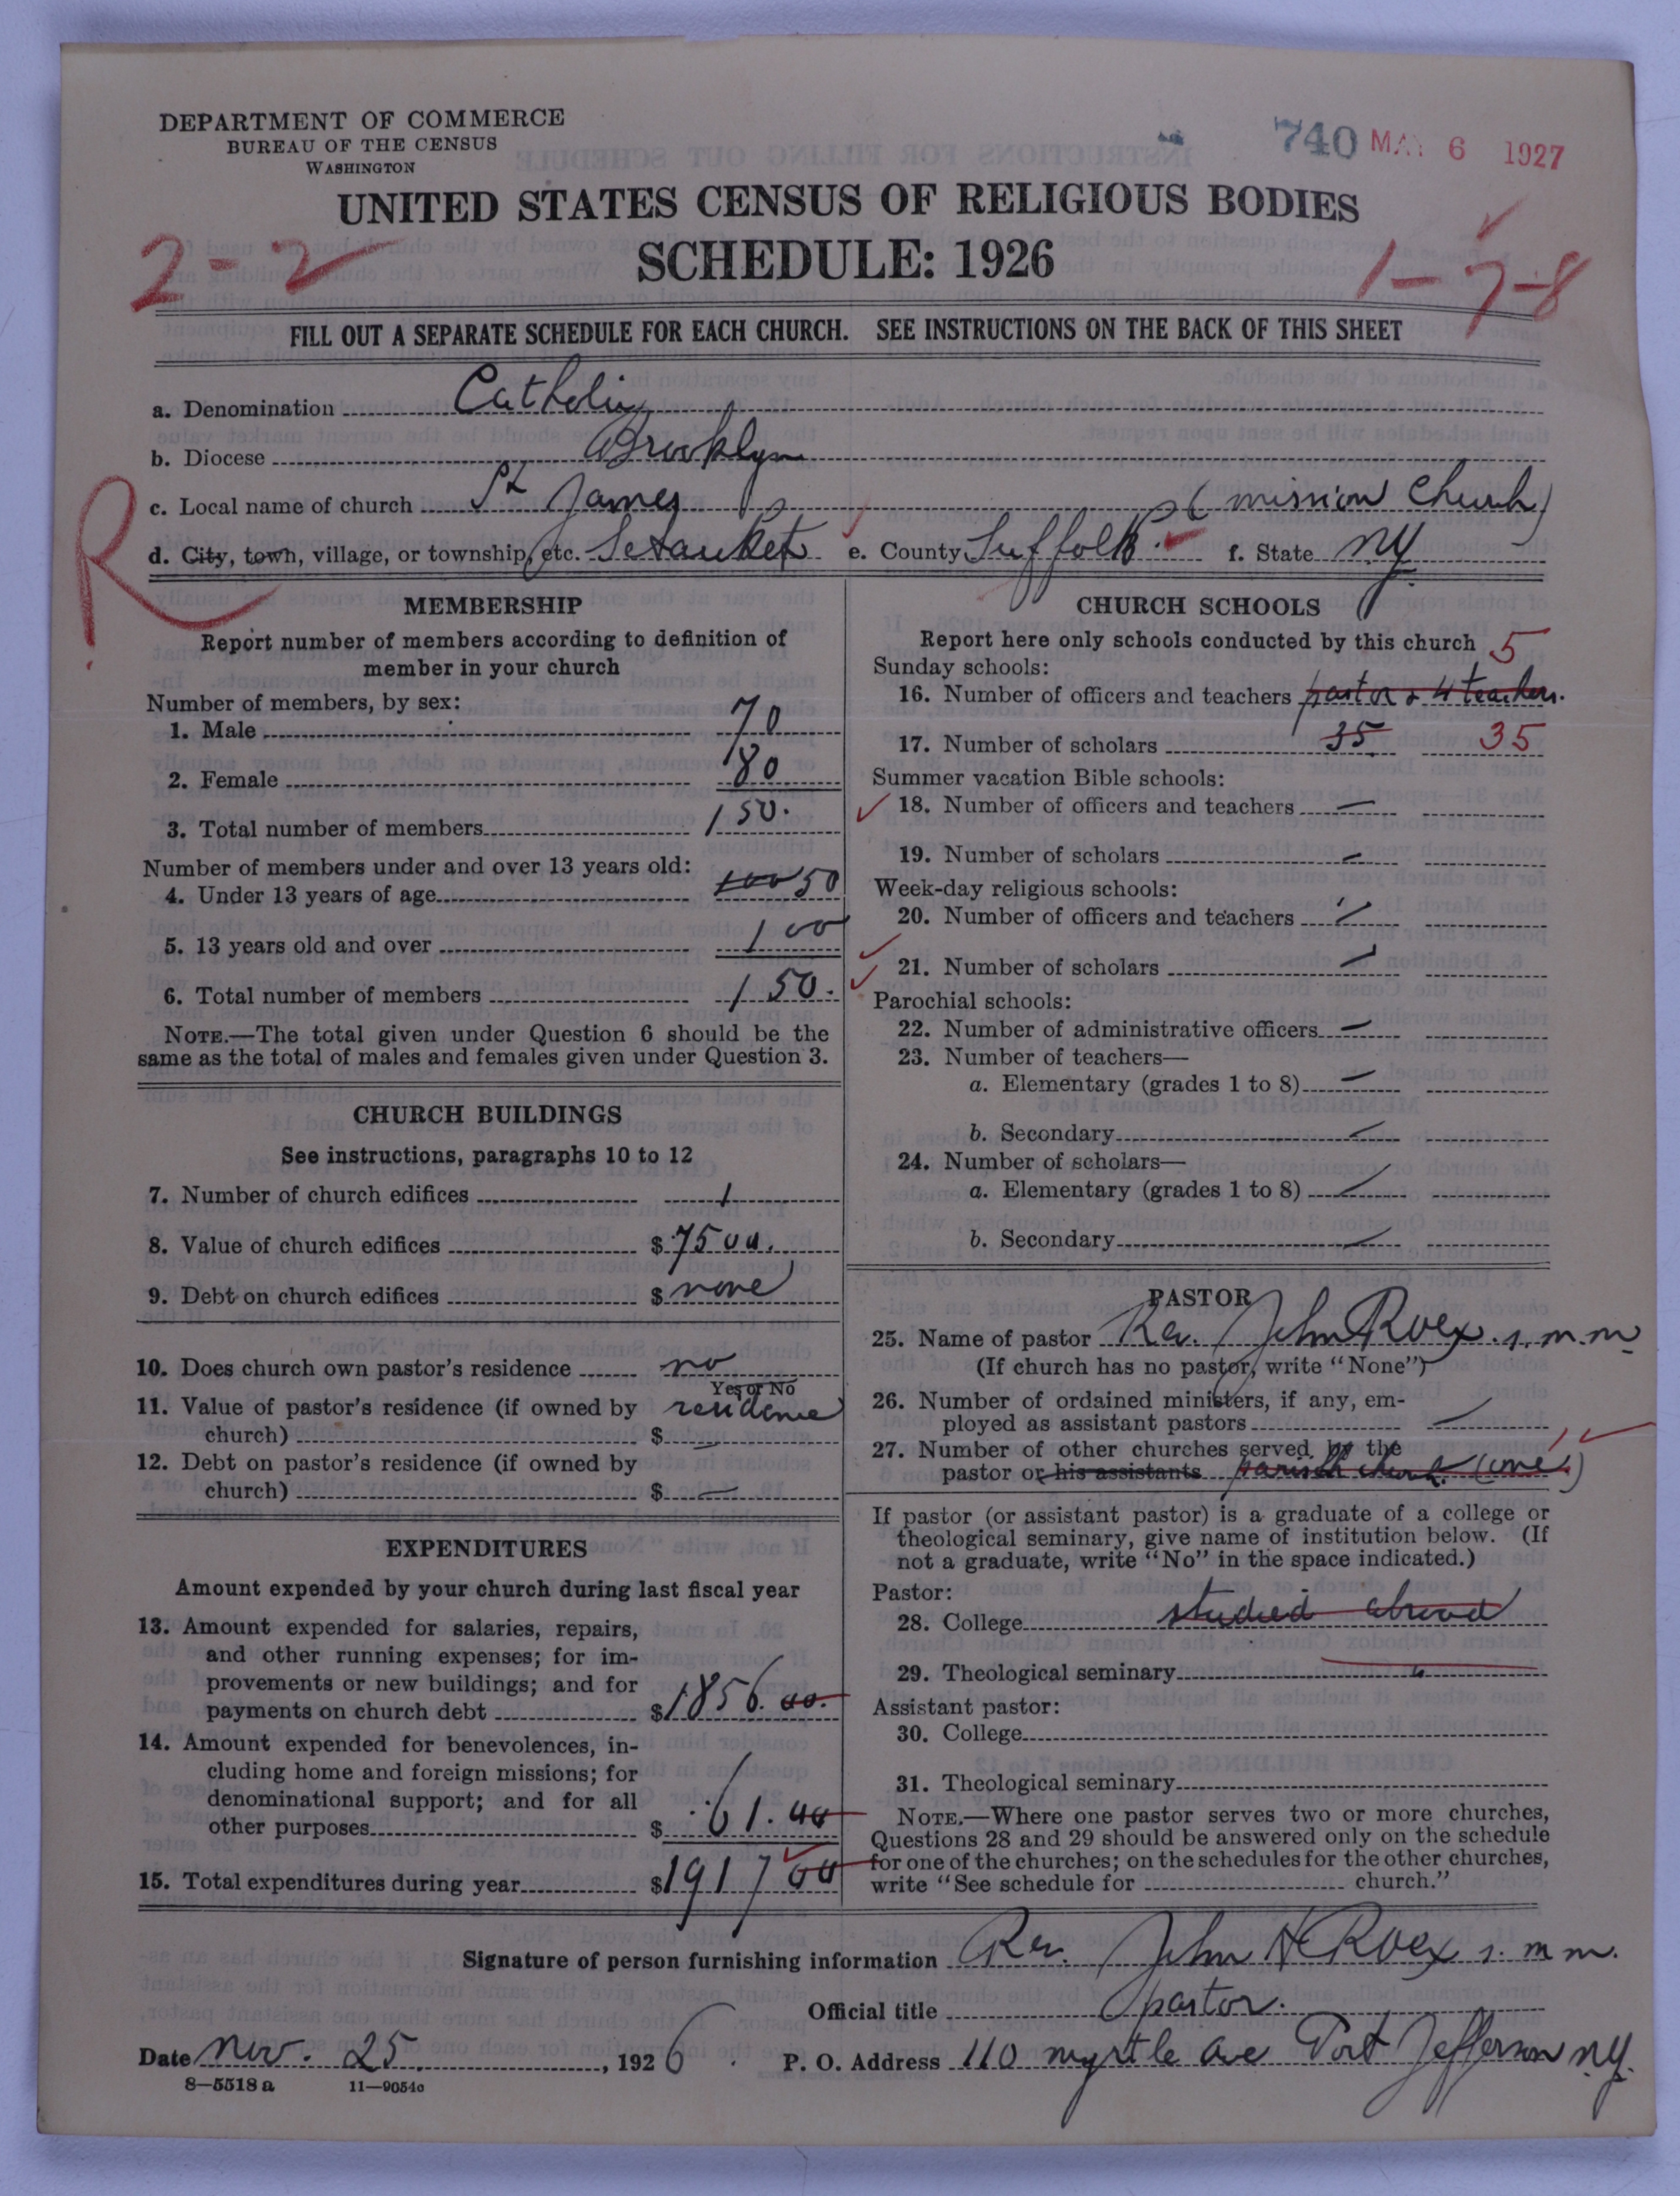 DEPARTMENT OF COMMERCE
BUREAU OF THE CENSUS
WASHINGTON
740 MAY 6 1927
UNITED STATES CENSUS OF RELIGIOUS BODIES
SCHEDULE: 1926
2-2
1-7-8
FILL OUT A SEPARATE SCHEDULE FOR EACH CHURCH. SEE INSTRUCTIONS ON THE BACK OF THIS SHEET
a. Denomination Catholic
b. Diocese Brooklyn
R
c. Local name of church St James (mission Church)
d. City, town, village, or township, etc. Setauket e. County Suffolk. f. State NY
MEMBERSHIP
Report number of members according to definition of
member in your church
Number of members, by sex:
1. Male 70
2. Female 80
3. Total number of members 150.
Number of members under and over 13 years old:
4. Under 13 years of age 100 50
5. 13 years old and over 100
6. Total number of members 150.
NOTE.—The total given under Question 6 should be the
same as the total of males and females given under Question 3.
CHURCH BUILDINGS
See instructions, paragraphs 10 to 12
7. Number of church edifices 1
8. Value of church edifices $7500.
9. Debt on church edifices $ none
10. Does church own pastor's residence no
Yes or No
11. Value of pastor's residence (if owned by residence
church) $ —
12. Debt on pastor's residence (if owned by
church) $ —
EXPENDITURES
Amount expended by your church during last fiscal year
13. Amount expended for salaries, repairs,
and other running expenses; for im-
provements or new buildings; and for
payments on church debt $1856.00.
14. Amount expended for benevolences, in-
cluding home and foreign missions; for
denominational support; and for all
other purposes $ 61.00
15. Total expenditures during year $1917 00
CHURCH SCHOOLS
Report here only schools conducted by this church 5
Sunday schools:
16. Number of officers and teachers pastor & 4 teachers.
17. Number of scholars 35 35
Summer vacation Bible schools:
18. Number of officers and teachers —
19. Number of scholars —
Week-day religious schools:
20. Number of officers and teachers —
21. Number of scholars —
Parochial schools:
22. Number of administrative officers —
23. Number of teachers—
a. Elementary (grades 1 to 8) —
b. Secondary —
24. Number of scholars—
a. Elementary (grades 1 to 8) —
b. Secondary —
PASTOR
25. Name of pastor Rev. John Roex. s.m.m.
(If church has no pastor, write "None")
26. Number of ordained ministers, if any, em-
ployed as assistant pastors —
27. Number of other churches served by the 1
pastor or his assistants parish church (one)
If pastor (or assistant pastor) is a graduate of a college or
theological seminary, give name of institution below. (If
not a graduate, write "No" in the space indicated.)
Pastor:
28. College studied abroad
29. Theological seminary "
Assistant pastor:
30. College
31. Theological seminary
NOTE.—Where one pastor serves two or more churches,
Questions 28 and 29 should be answered only on the schedule
for one of the churches; on the schedules for the other churches,
write "See schedule for church."
Signature of person furnishing information Rev. John H Roex s.m.m.
Official title pastor.
Date Nov. 25. , 1926. P. O. Address 110 myrtle ave Port Jefferson NY.
8—5518 a 11—9054c